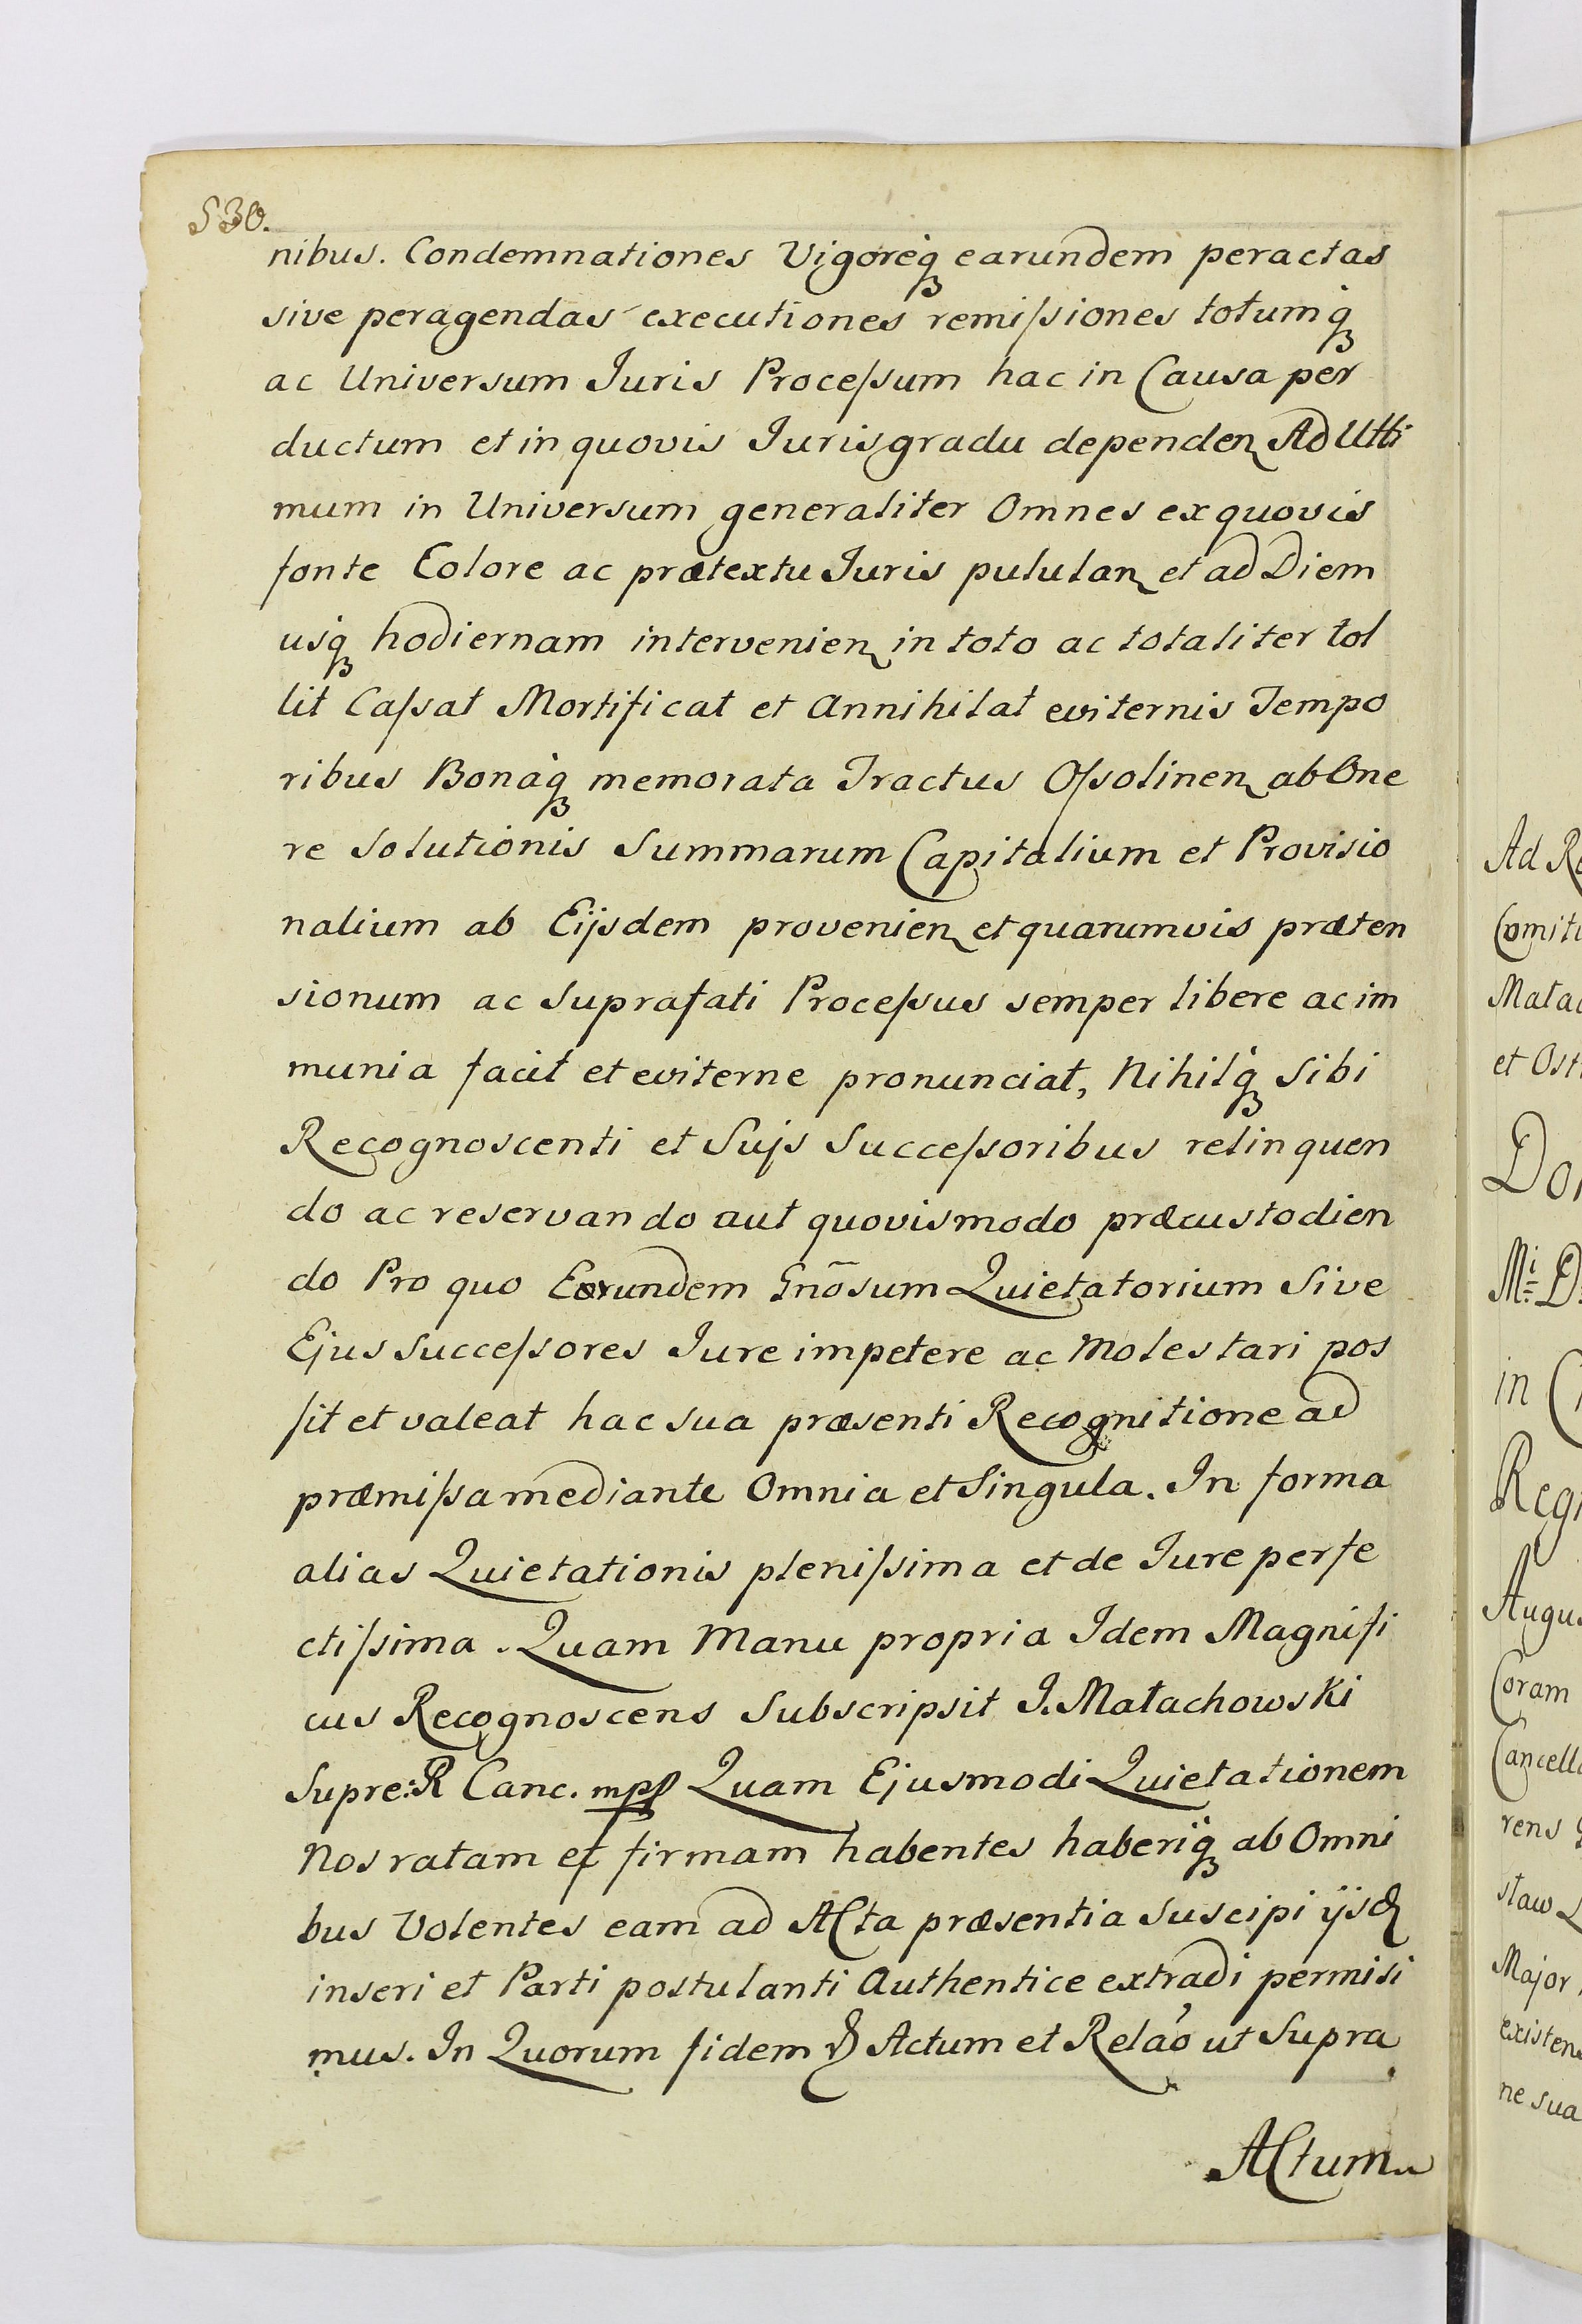 530.
nibus. Condemnationes Vigoreq́ꝫ earundem peractas
sive peragendas executiones remiſsiones totumq́ꝫ
ac Universum Juris Proceſsum hac in Causa per
ductum et in quovis Juris gradu dependen Ad Ulti
mum in Universum generaliter Omnes ex quovis
fonte Colore ac prætextu Juris pululan et ad Diem
usq́ꝫ hodiernam intervenien in toto ac totaliter tol
lit Caſsat Mortificat et Annihilat eviternis Tempo
ribus Bonaq́ꝫ memorata Tractus Oſsolinen ab One
re Solutionis Summarum Capitalium et Provisio
nalium ab Eijsdem provenien et quarumvis præten
sionum ac Suprafati Proceſsus semper libere ac im
munia facit et eviterne pronunciat, Nihilq́ꝫ Sibi
Recognoscenti et Suis Succeſsoribus relinquen
do ac reservando aut quovismodo præcustodien
do Pro quo Eorundem Gnõsum Quietatorium Sive
Ejus Succeſsores Jure impetere ac Molestari pos
sit et valeat hac sua præsenti Recognitione ad
præmiſsa mediante Omnia et Singula. In forma
alias Quietationis pleniſsima et de Jure perfe
ctiſsima. Quam Manu propria Idem Magnifi
cus Recognoscens Subscripsit J. Małachowski
Supre: R Canc. mpp Quam Ejusmodi Quietationem
Nos ratam et firmam habentes haberiq́ꝫ ab Omni
bus Volentes eam ad Acta præsentia Suscipi ijsd
inseri et Parti postulanti Authentice extradi permisi
mus. In Quorum fidem Actum et Relaõ ut Supra
Actum
Ad
Comiti
et Ost
in
Augus
Coram
Cancella
rens
staw
Major
existen
ne sua